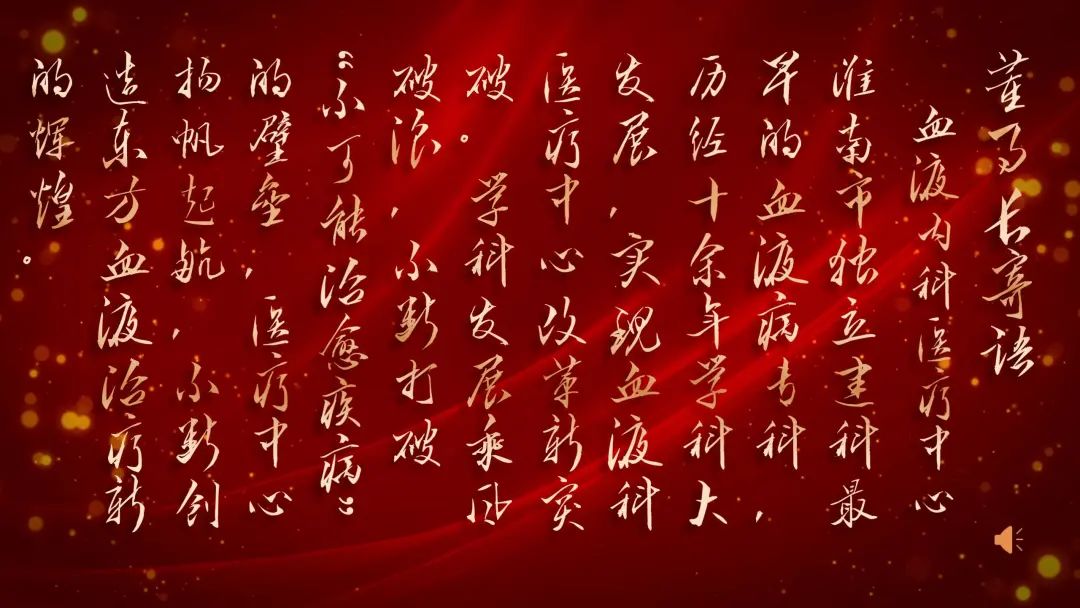 董事长寄语
血液内科医疗中心
淮南市独立建科最
早的血液病专科，
历经十余年学科大
发展，实现血液科
医疗中心改革新突
破。学科发展乘风
破浪，不断打破
“不可能治愈疾病”
的壁垒，医疗中心
扬帆起航，不断创
造东方血液治疗新
的辉煌。